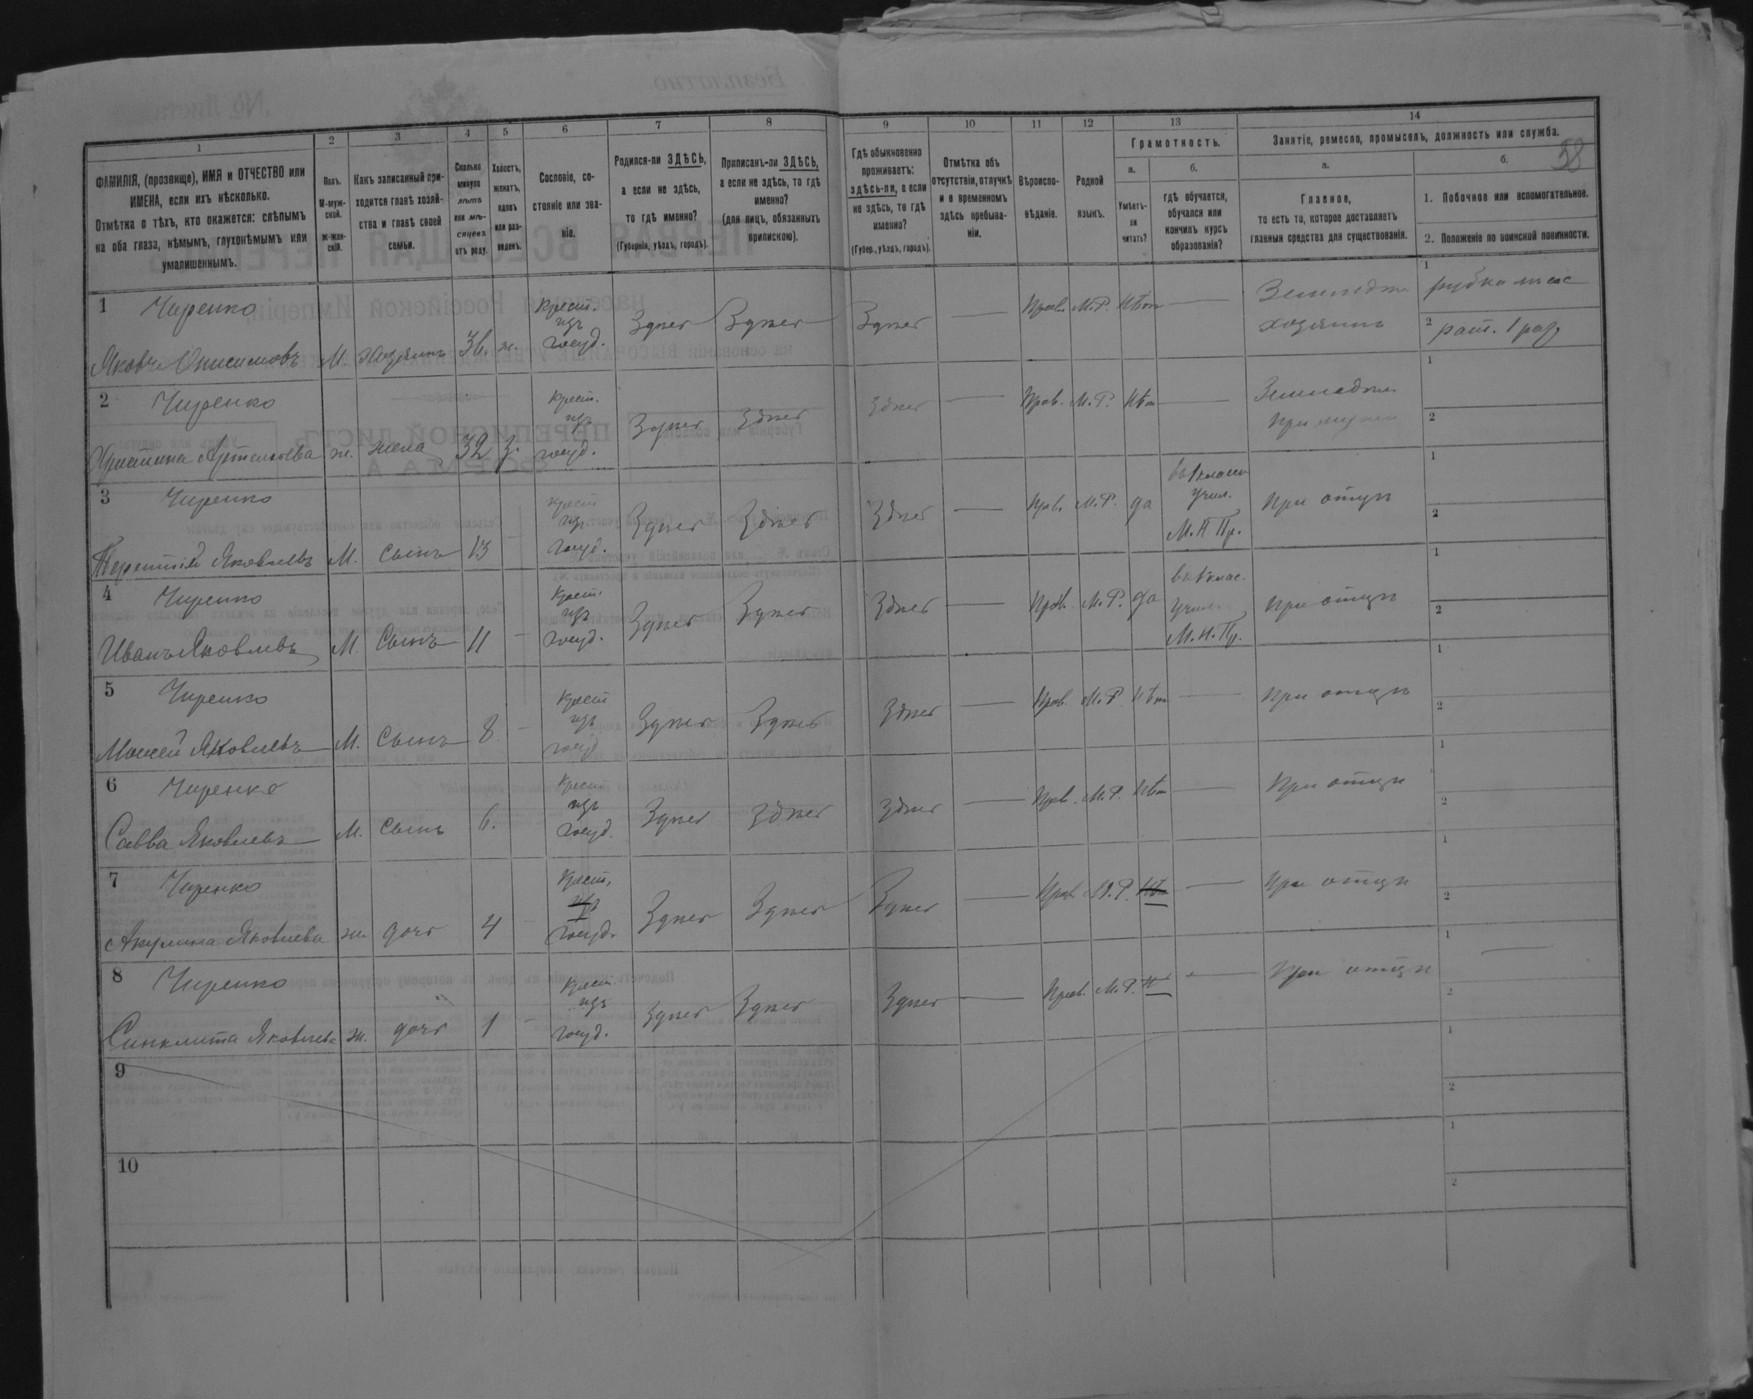 58
1 2 3 4 5 6 7 8 9 10 11 12 13 14
ФАМИЛІЯ, (прозвище), ИМЯ и ОТЧЕСТВО или
ИМЕНА, если ихъ нѣсколько.
Отмѣтка о тѣхъ, кто окажется: слѣпымъ
на оба глаза, нѣмымъ, глухонѣмымъ или
умалишеннымъ.
Полъ.
М-муж-
ской.
Ж-жен-
скій.
Какъ записанный при-
ходится главѣ хозяй-
ства и главѣ своей
семьи.
Сколько
минуло
лѣтъ
или мѣ-
сяцевъ
отъ роду.
Холостъ,
женатъ,
вдовъ
или раз-
веденъ.
Сословіе, со-
стояніе или зва-
ніе.
Родился-ли ЗДѢСЬ,
а если не здѣсь,
то гдѣ именно?
(Губернія, уѣздъ, городъ).
Приписанъ-ли ЗДѢСЬ,
а если не здѣсь, то гдѣ
именно?
(для лицъ, обязанныхъ
припискою).
Гдѣ обыкновенно
проживаетъ:
здѣсь-ли, а если
не здѣсь, то гдѣ
именно?
(Губер., уѣздъ, городъ).
Отмѣтка объ
отсутствіи, отлучкѣ
и о временномъ
здѣсь пребыва-
ніи.
Вѣроиспо-
вѣданіе.
Родной
языкъ.
Грамотность.
а.
Умѣетъ-
ли
читать?
б.
гдѣ обучается,
обучался или
кончилъ курсъ
образованія?
Занятіе, ремесло, промыселъ, должность или служба.
а.
Главное,
то есть то, которое доставляетъ
главныя средства для существованія.
б.
1. Побочное или вспомогательное.
2. Положеніе по воинской повинности.
1 Чиренко
Яковъ Онисимовъ М. хозяинъ 36. ж. Крест. изъ госуд. Здесь Здесь Здесь — Прав. М.Р. нѣт — хозяинъ
1
2 рат. 1 раз.
2 Чиренко
Христина Артемьева ж. жена 32 з. Крест. изъ госуд. Здесь Здесь Здесь — Прав. М.Р. нѣт —
1
2
3 Чиренко
Терентій Яковлевъ М. сынъ 13 - Крест изъ госуд. Здесь Здесь Здесь — Прав. М.Р. да М.Н.Пр. При отцѣ
1
2
4 Чиренко
Иванъ Яковлевъ М. Сынъ 11 - Крест. изъ госуд. Здесь Здесь Здесь — Прав. М.Р. да М.Н.Пр. При отцѣ
1
2
5 Чиренко
Моисей Яковлевъ М. Сынъ 8. - Крест изъ госуд Здесь Здесь Здесь — Прав. М.Р нѣт — При отцѣ
1
2
6 Чиренко
Савва Яковлевъ М. Сынъ 6. Крест изъ госуд. Здесь Здесь Здесь — Прав. М.Р. нѣт — При отцѣ
1
2
7 Чиренко
Акулина Яковлева ж. дочь 4 - Крест. изъ госуд. Здесь Здесь Здесь — Прав М.Р. нѣ — При отцѣ
1
2
8 Чиренко
Синклита Яковлева ж. дочь 1 - Крест. изъ госуд. Здесь Здесь Здесь — Прав. М.Р. — При отцѣ
1
2
9
1
2
10
1
2